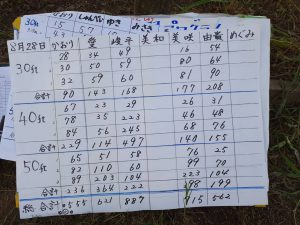 8月28日 かおり 愛 峻平 美和 美咲 由貴 めぐみ
78 34 49 16 54
30分 30 50 59 80 64
32 59 60 81 90
合計 90 143 168 177 208
67 23 29 26 31
40分 78 35 223 46 48
84 56 245 68 76
合計 229 114 497 140 155
65 51 58 76 25
50分 82 110 60 99 70
89 203 104 223 104
合計 236 364 222 398 199
総合計 555 621 887 715 562